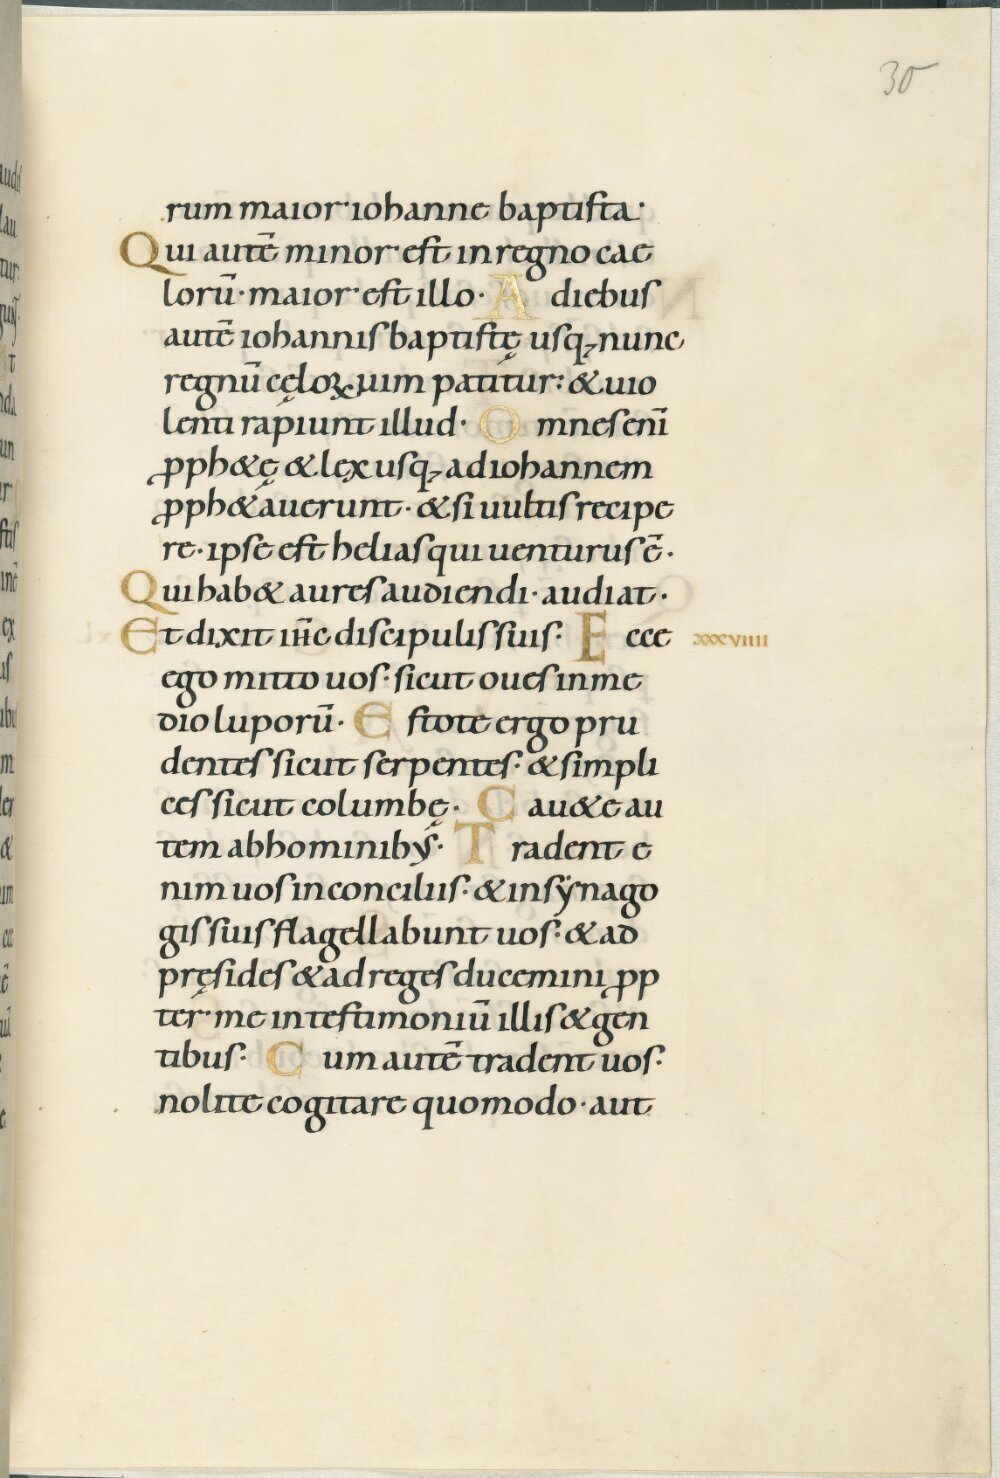 30
rum maior·iohanne baptista·
Qui autē minor·est in regno cae
lorū·maior·est illo· A diebus
autē iohannis baptistę usq; nunc
regnū cęloꝝ uim patitur: & uio
lenti rapiunt illud· Omnes eni̅
ꝓph&ę & lex usq; ad iohannem
ꝓph&auerunt· & si uultis recipe
re· ipse est helias qui uenturus ē·
Qui hab& aures audiendi· audiat·
Et dixit ih̅c discipulis suis: Ecce xxxviiii
ego mitto uos· sicut oues in me
dio luporū· Estote ergo pru
dentes sicut serpentes· & simpli
ces sicut columbę· Cau&e au
tem ab hominibꝰ· Tradent e
nim uos in conciliis· & in sẏnago
gis suis flagellabunt uos· & ad
pręsides & ad reges ducemini ꝓp
ter· me in testimoniū illis & gen
tibus· Cum autē tradent uos·
nolite cogitare quomodo· aut